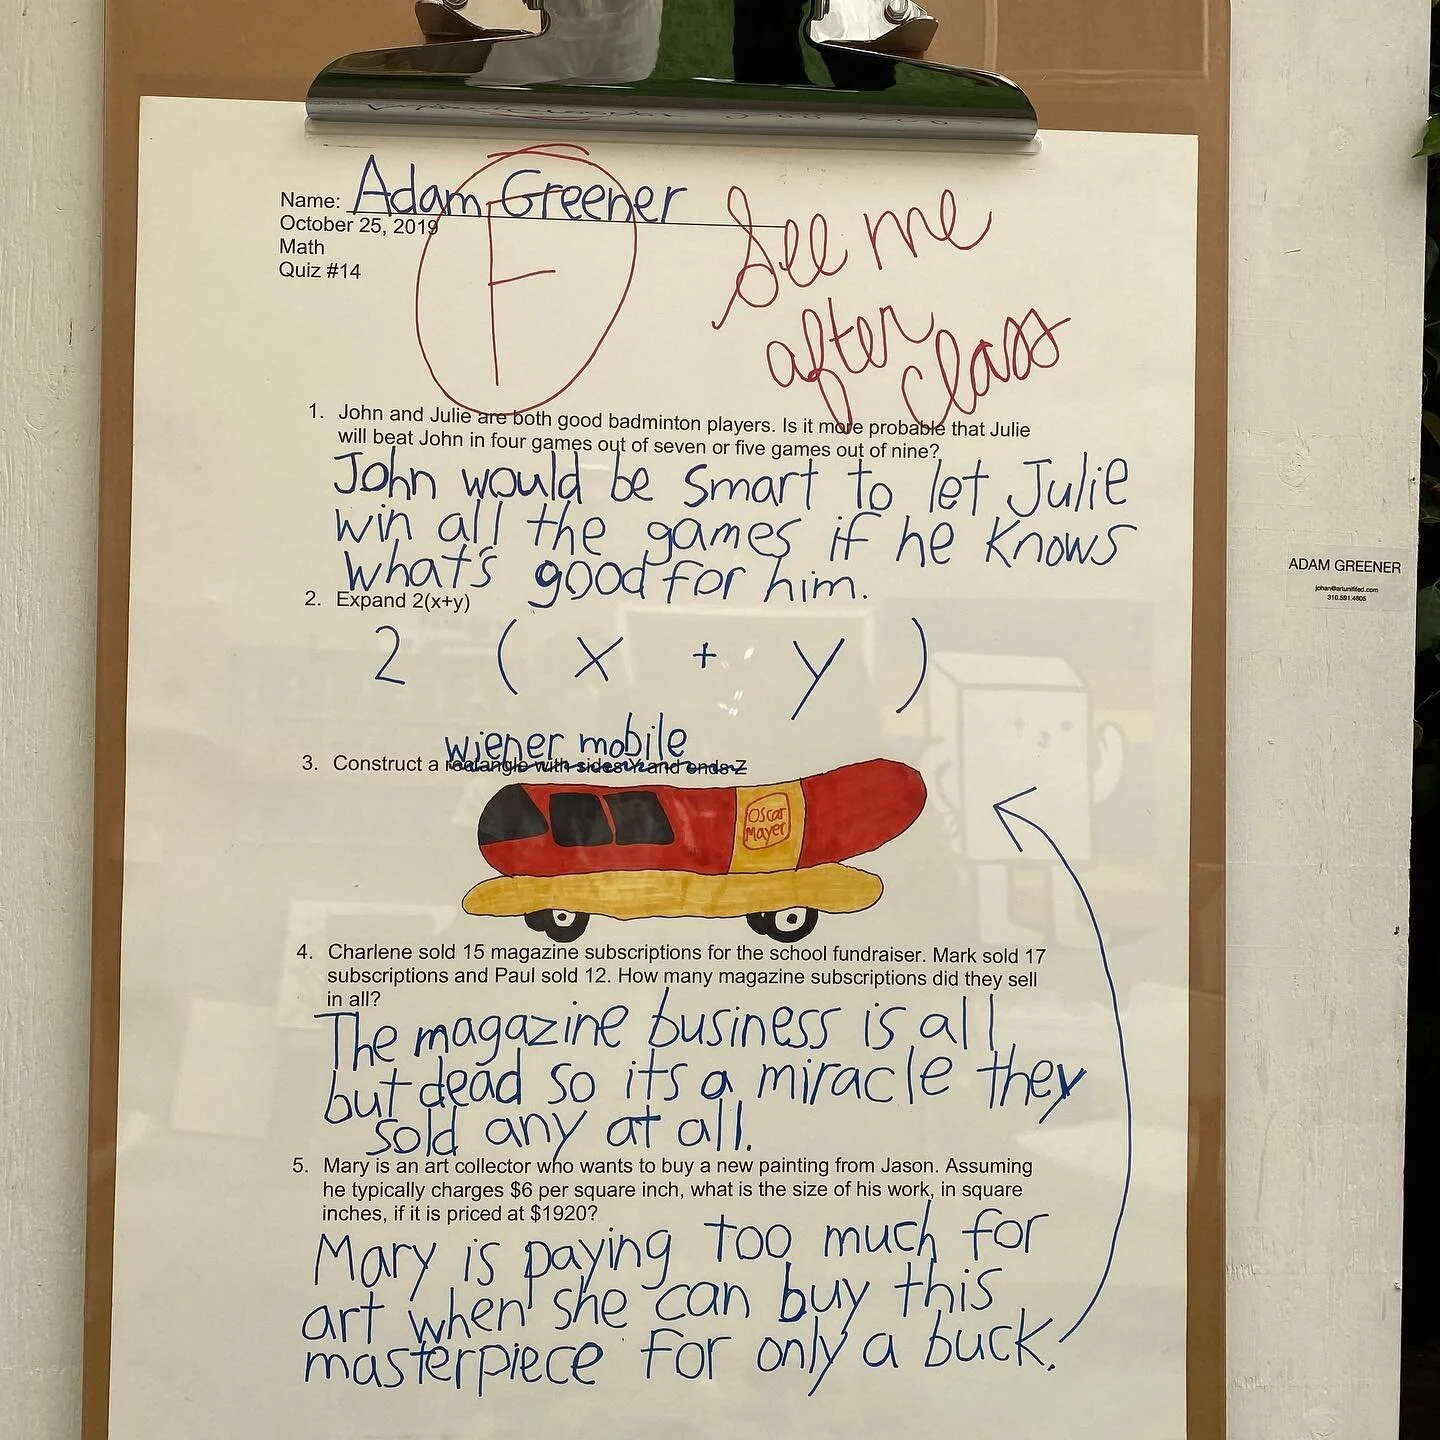 Name: Adam Greener
October 25, 2019
Math
Quiz #14
F
See me
after
class
1. John and Julie are both good badminton players. Is it more probable that Julie
will beat John in four games out of seven or five games out of nine?
John would be smart to let Julie
win all the games if he knows
what's good for him.
2. Expand 2(x+y)
2 ( x + y )
wiener mobile
3. Construct a rectangle with sides Y and ends Z
Oscar
Mayer
4. Charlene sold 15 magazine subscriptions for the school fundraiser. Mark sold 17
subscriptions and Paul sold 12. How many magazine subscriptions did they sell
in all?
The magazine business is all
but dead so its a miracle they
sold any at all.
5. Mary is an art collector who wants to buy a new painting from Jason. Assuming
he typically charges $6 per square inch, what is the size of his work, in square
inches, if it is priced at $1920?
Mary is paying too much for
art when she can buy this
masterpiece for only a buck.
ADAM GREENER
johan@artunified.com
310.591.4805